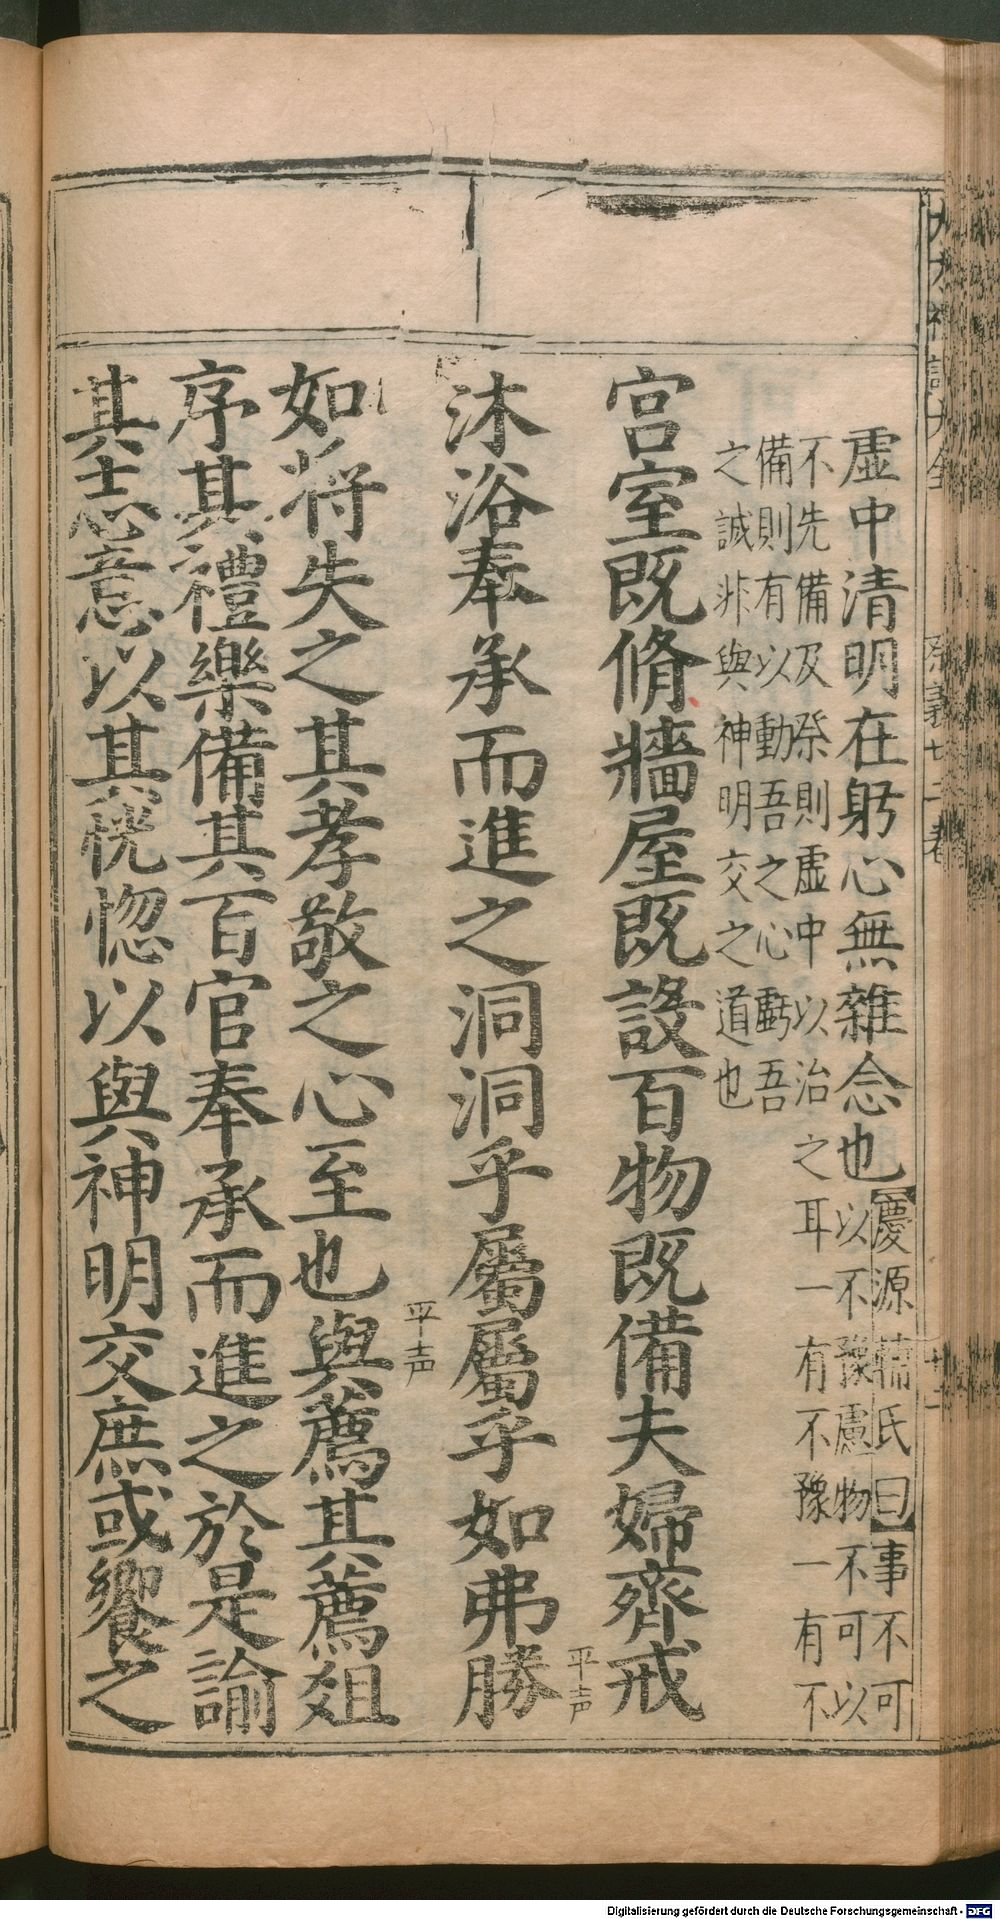 虛中清明在躬心無雜念也【慶源輔氏曰】事不可
以不豫慮物不可以
不先備及祭則虛中以治之耳一有不豫一有不
備則有以動吾之心虧吾
之誠非與神明交之道也
宮室既脩牆屋既設百物既備夫婦齊戒
沐浴奉承而進之洞洞乎屬屬乎如弗勝平声
如將失之其孝敬之心至也與平声薦其薦俎
序其禮樂備其百官奉承而進之於是諭
其志意以其恍惚以與神明交庶或饗之
祭義廿二卷
Digitalisierung gefördert durch die Deutsche Forschungsgemeinschaft - DFG